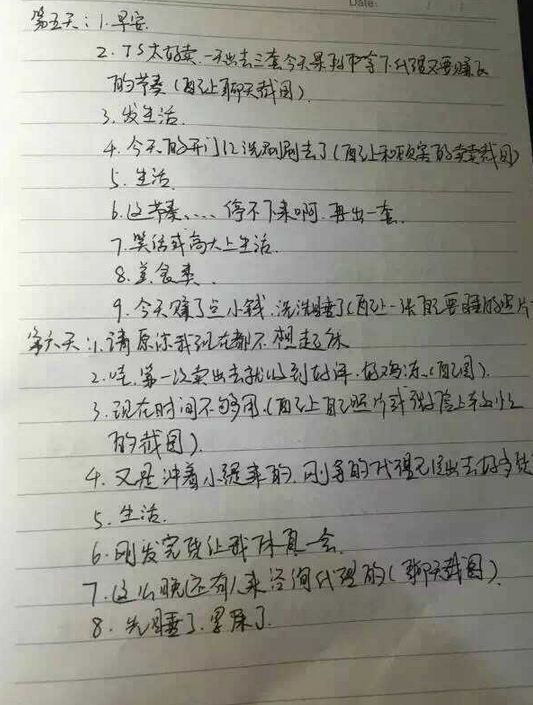 Date:
第五天：1.早安.
2. TS太好卖.一天出去三套今天果和中等下.代理又要赚
的节奏(配上聊天截图).
3.发生活.
4.今天的开门红洗刷刷去了(配上和顾客的卖卖截图)
5.生活.
6.这节奏....停不下来啊.再出一套.
7.笑话或高大上生活.
8.美食类.
9.今天赚了点小钱.洗洗睡了(配上一张自己要睡的照片
第六天:1.请原谅我现在都不想起床
2.哇.第一次卖出去就收到好评.好鸡冻.(配图).
3.现在时间不够用.(配上自己照片或微信上未
的截图).
4.又是冲着小提来的.刚多的代理已经出去好多货
5.生活.
6.刚发完货让我休息一会.
7.这么晚还有人来咨询代理的(聊天截图).
8.先睡了.累尿了.